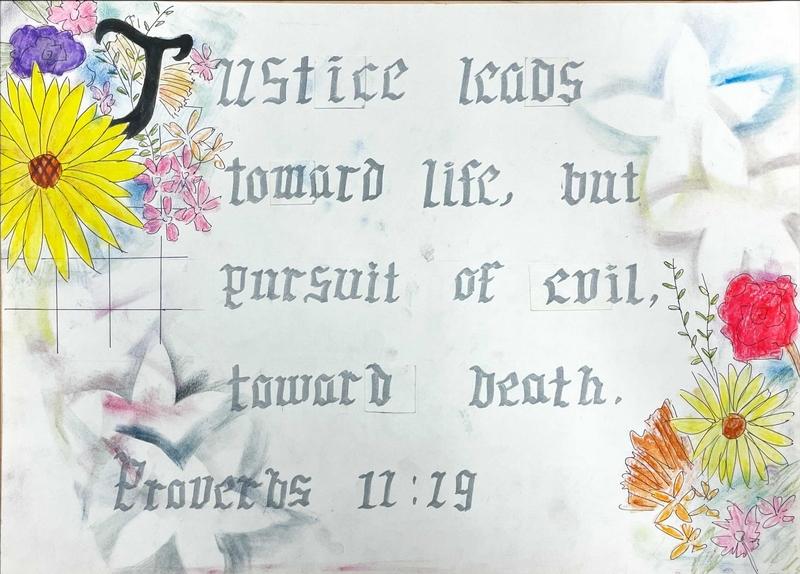 Justice leads
toward life, but
pursuit of evil,
toward death.
Proverbs 11:19